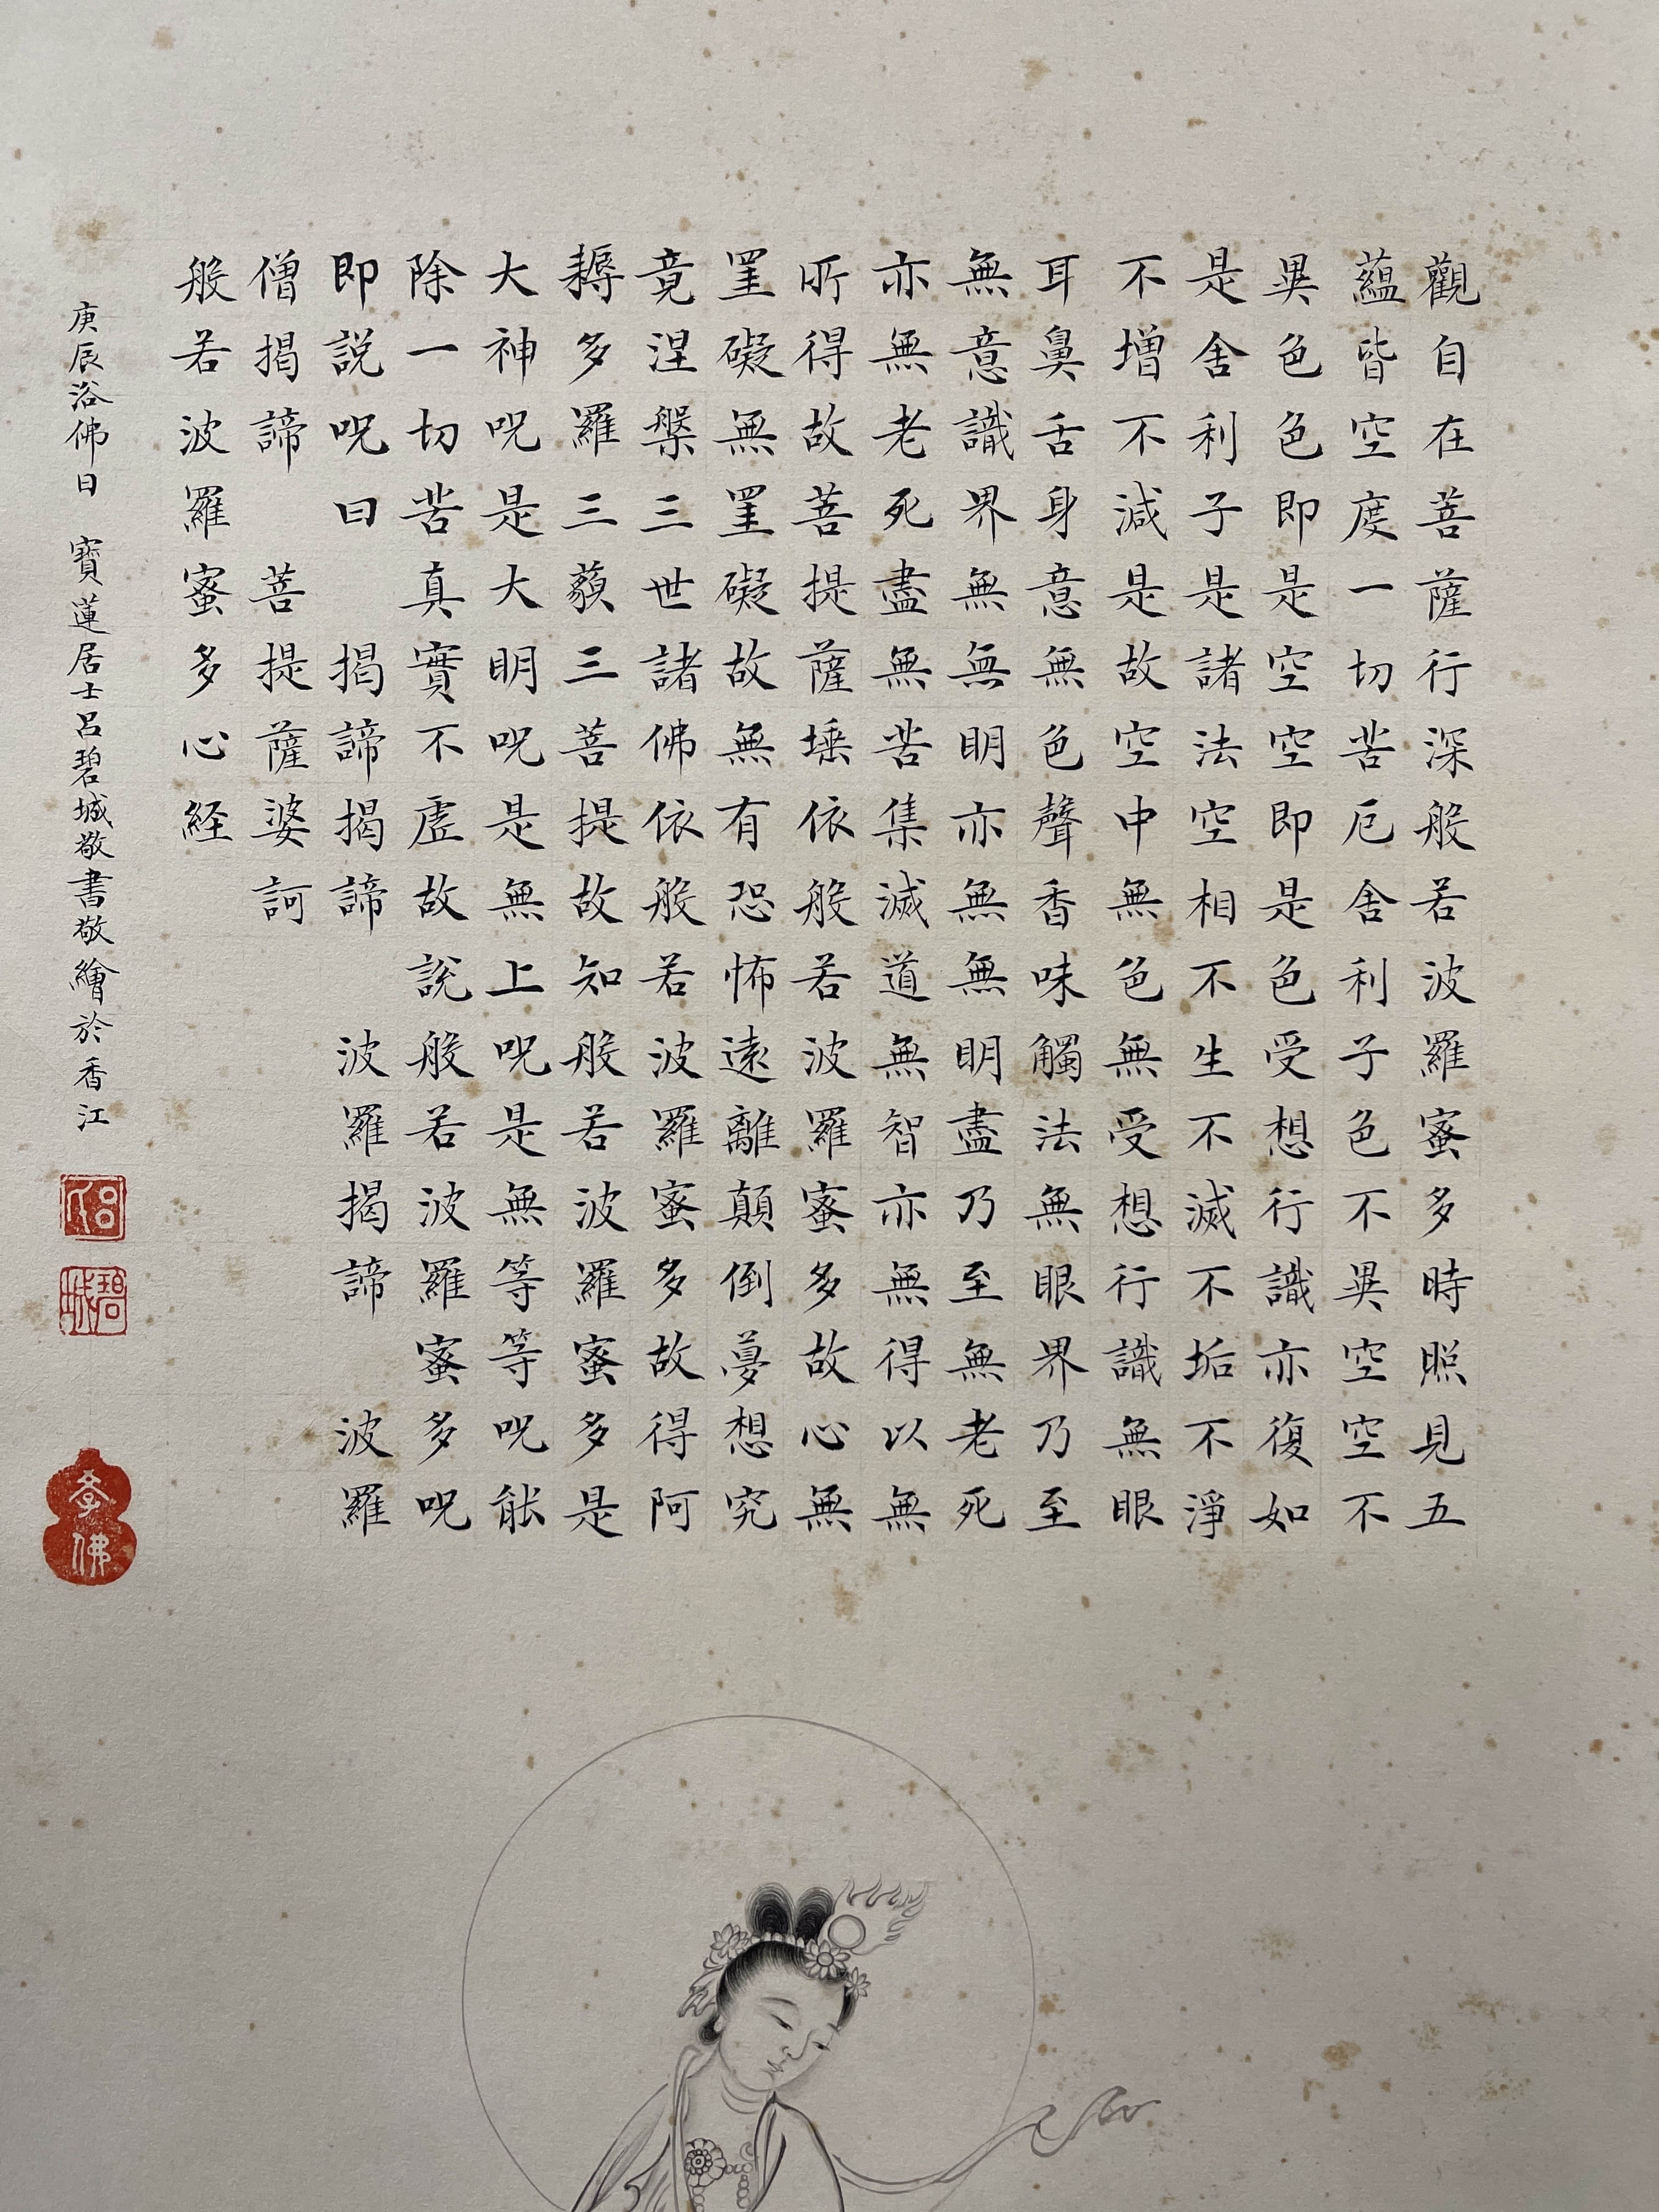 觀自在菩薩行深般若波羅蜜多時照見五
蘊皆空度一切苦厄舍利子色不異空空不
異色色即是空空即是色受想行識亦復如
是舍利子是諸法空相不生不滅不垢不淨
不增不減是故空中無色無受想行識無眼
耳鼻舌身意無色聲香味觸法無眼界乃至
無意識界無無明亦無無明盡乃至無老死
亦無老死盡無苦集滅道無智亦無得以無
所得故菩提薩埵依般若波羅蜜多故心無
罣礙無罣礙故無有恐怖遠離顛倒夢想究
竟涅槃三世諸佛依般若波羅蜜多故得阿
耨多羅三藐三菩提故知般若波羅蜜多是
大神呪是大明呪是無上呪是無等等呪能
除一切苦真實不虛故說般若波羅蜜多呪
即說呪曰 揭諦揭諦 波羅揭諦 波羅
僧揭諦 菩提薩婆訶
般若波羅蜜多心経
庚辰浴佛日 寶蓮居士呂碧城敬書敬繪於香江
呂氏
碧城
學佛